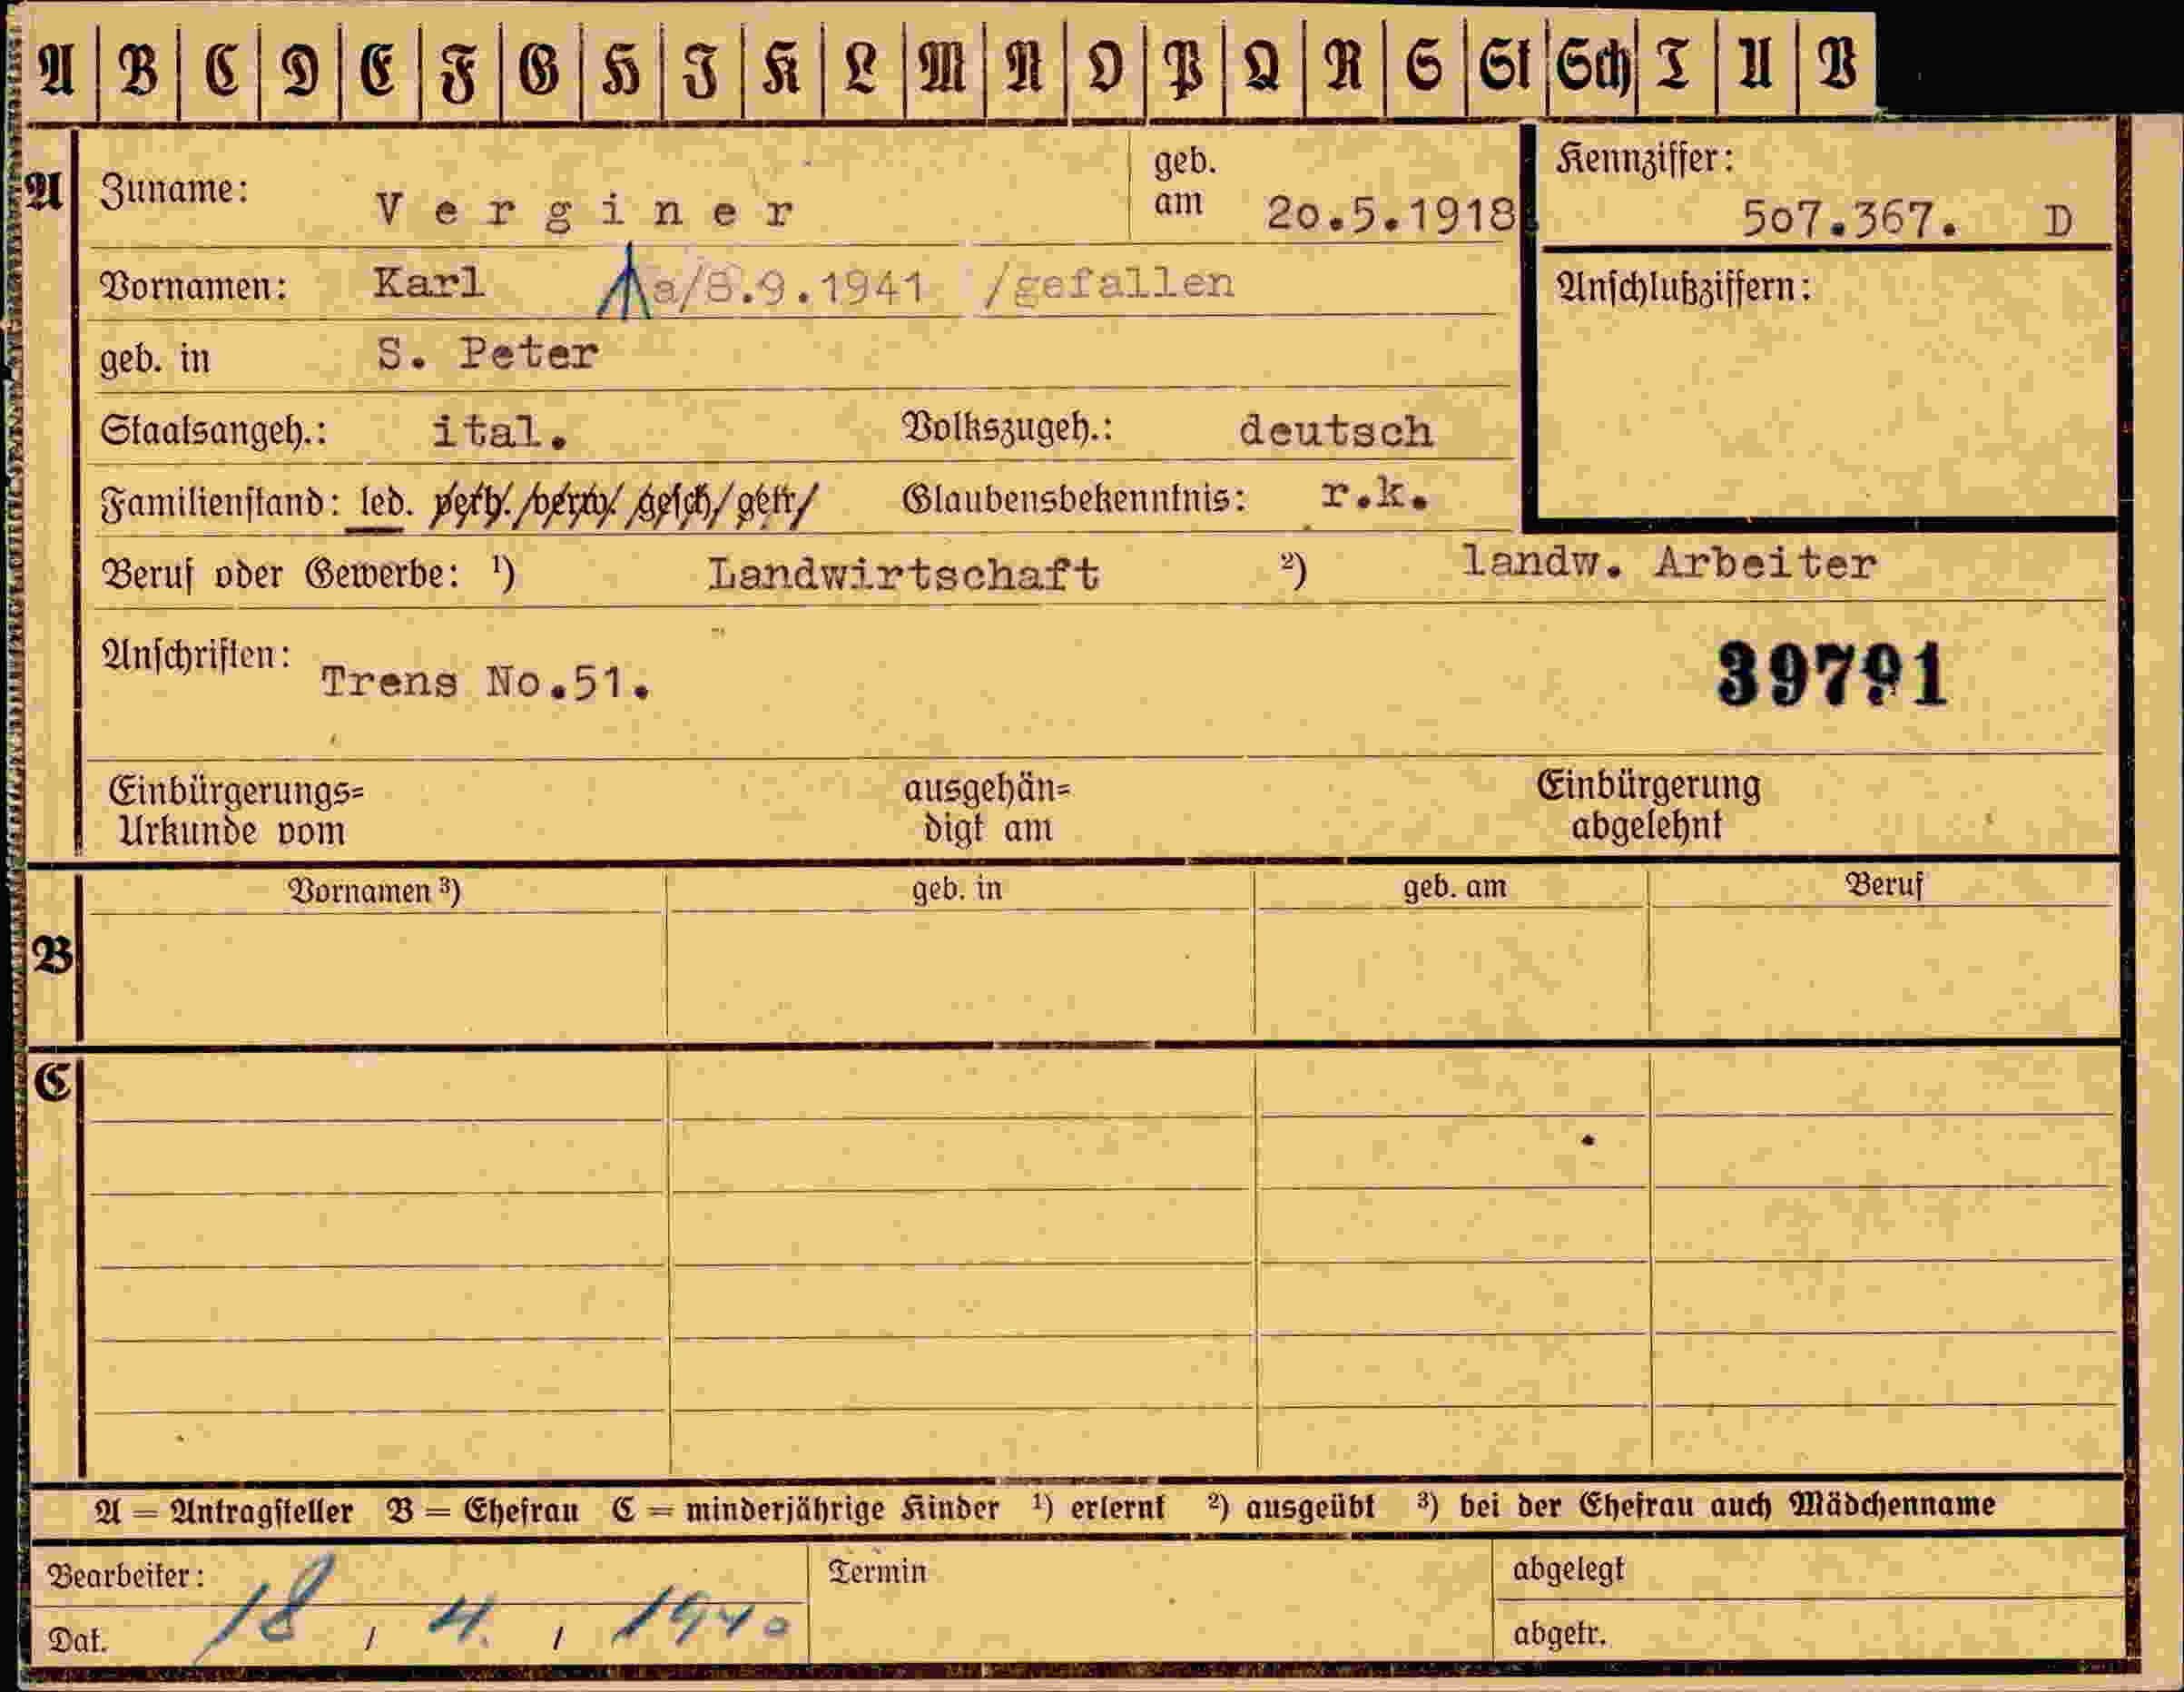 A B C D E F G H I K L M N O P Q R S St Sch T U V
A Zuname: Verginer geb. am 20.5.1918 Kennziffer: 507.367. D
Vornamen: Karl a/8.9.1941 /gefallen Anschlußziffern:
geb. in S. Peter
Staatsangeh.: ital. Volkszugeh.: deutsch
Familienstand: led. verh./verw./gesch/getr/ Glaubensbekenntnis: r.k.
Beruf oder Gewerbe: ¹) Landwirtschaft ²) landw. Arbeiter
Anschriften: Trens No.51. 39791
Einbürgerungs= ausgehän= Einbürgerung
Urkunde vom digt am abgelehnt
Vornamen ³) geb. in geb. am Beruf
B
C
A = Antragsteller B = Ehefrau C = minderjährige Kinder ¹) erlernt ²) ausgeübt ³) bei der Ehefrau auch Mädchenname
Bearbeiter: Termin abgelegt
Dat. 18 / 4. / 1940 abgetr.